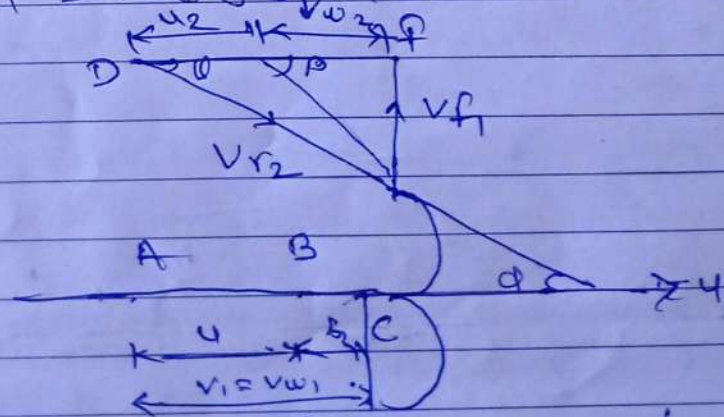 u2 Vw2
D θ β
Vf1
Vr2
A B
φ u
u C
V1 = Vw1